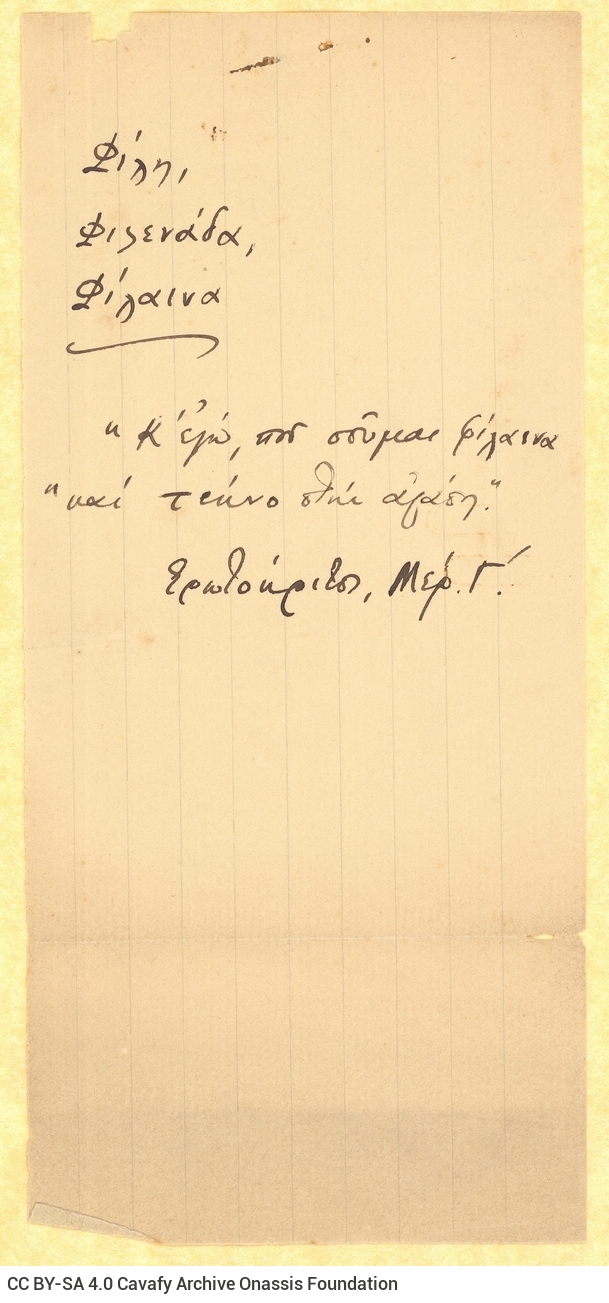 Φίλη,
Φιλενάδα,
Φίλαινα
"Κ' ἐγώ, ποῦ σοῦμαι φίλαινα
"καὶ τέκνο στὴν ἀγάπη."
Ἐρωτόκριτος, Μέρ. Γ΄.
CC BY-SA 4.0 Cavafy Archive Onassis Foundation